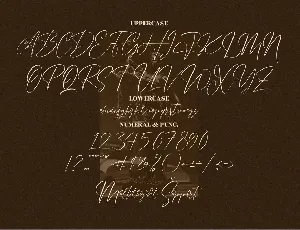 UPPERCASE
ABCDEFGHIJKLMN
OPQRSTUVWXYZ
LOWERCASE
abcdefghijklmnopqrstuvwxyz
NUMERAL & PUNC.
1234567890
Multilingual Support